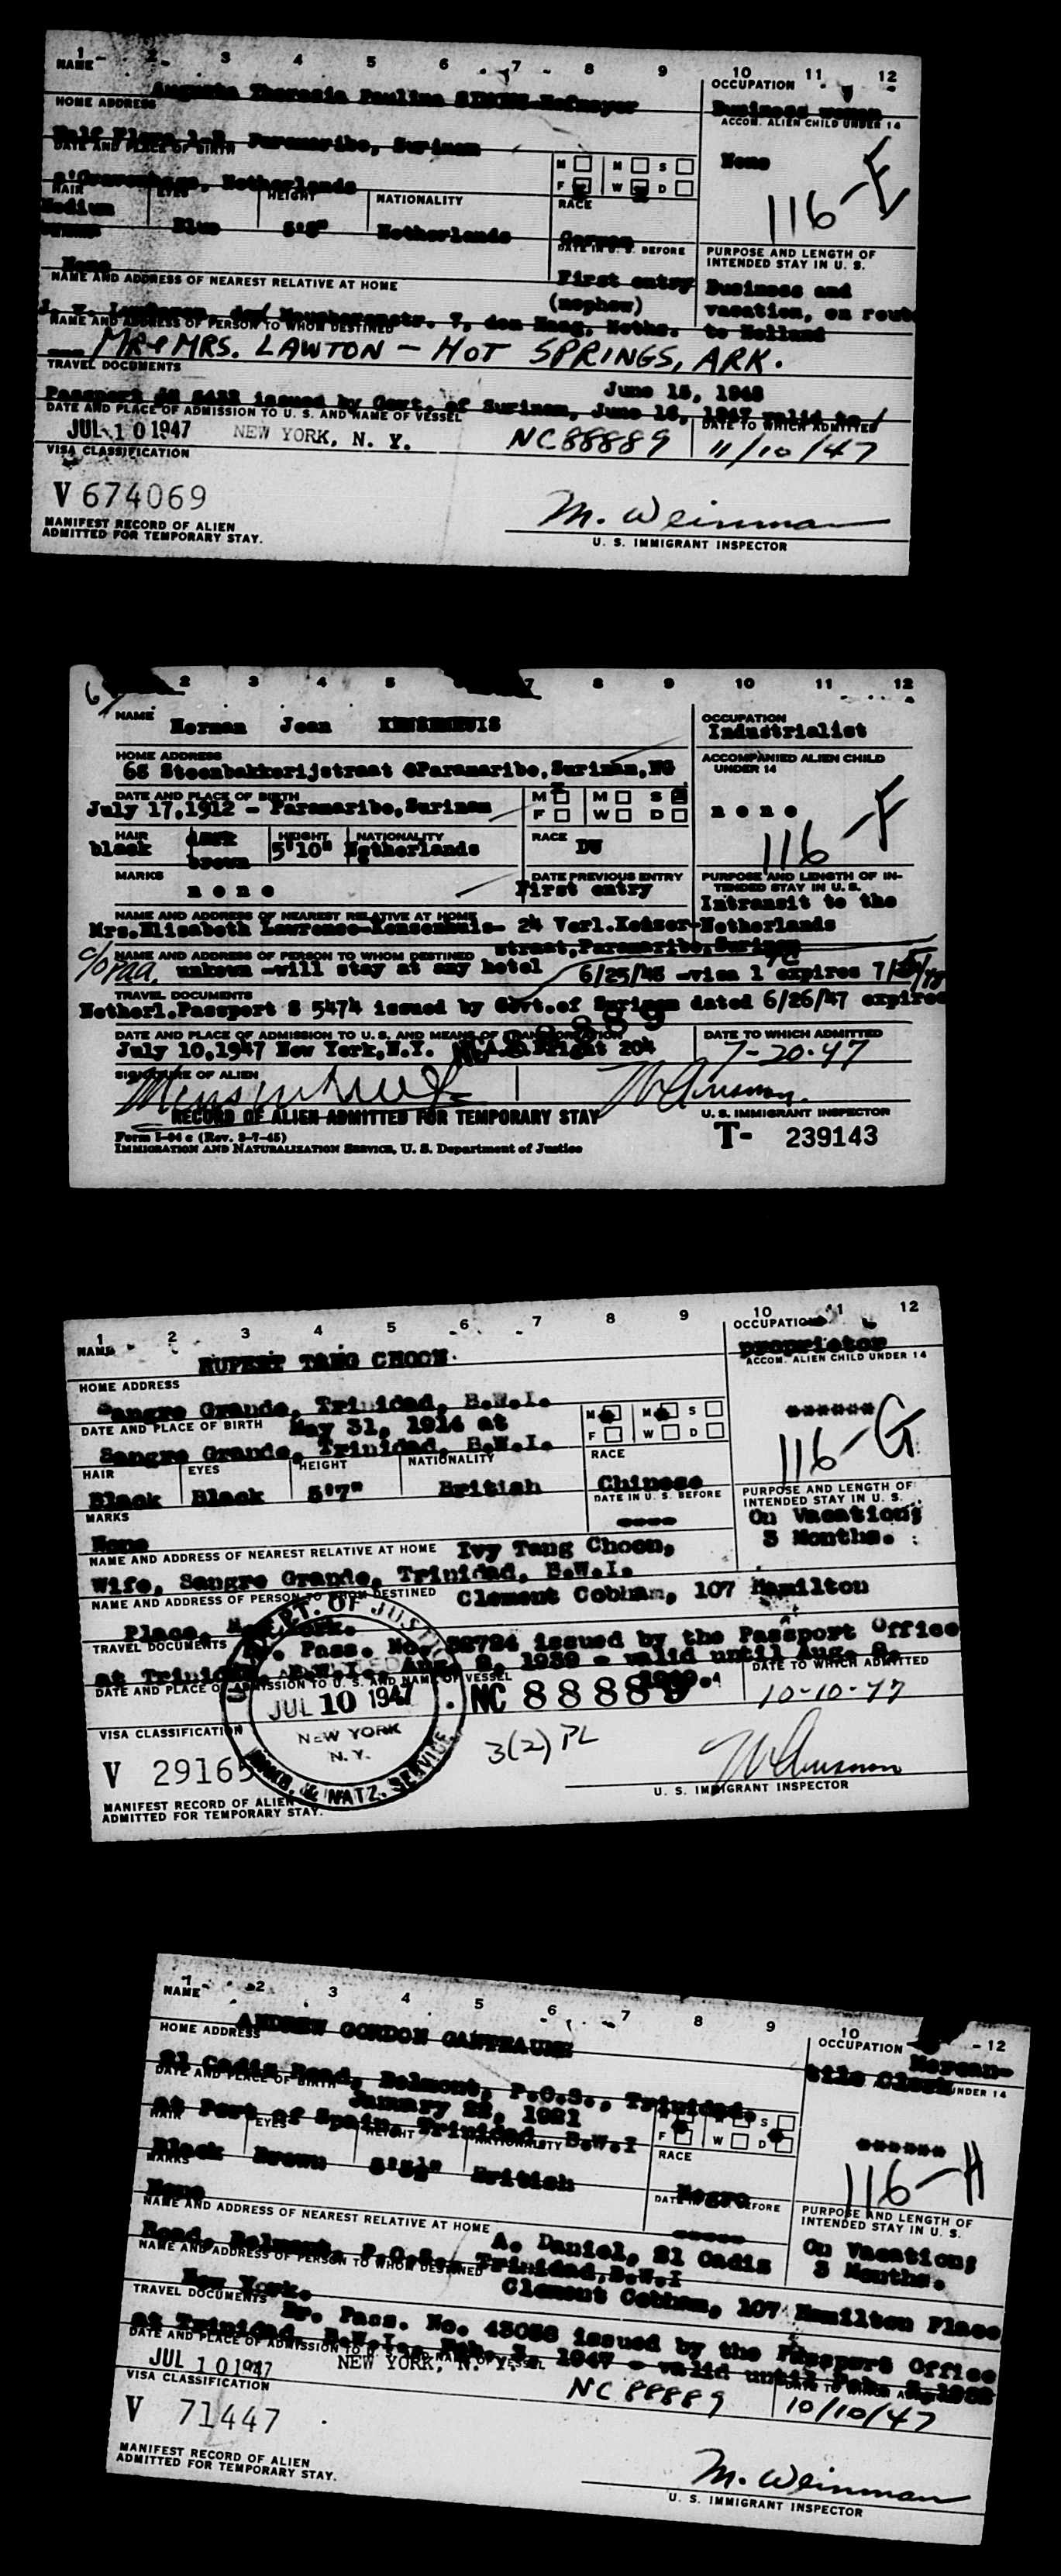 1 2 3 4 5 6 7 8 9 10 11 12
NAME
Augusta Theresia Paulina
OCCUPATION
Business woman
HOME ADDRESS
Paramaribo, Surinam
ACCOM. ALIEN CHILD UNDER 14
None
DATE AND PLACE OF BIRTH
s'Gravenhage, Netherlands
M M S
F W D
116-E
HAIR EYES HEIGHT NATIONALITY RACE
Medium Blue Netherlands German
DATE IN U. S. BEFORE
First entry
PURPOSE AND LENGTH OF
INTENDED STAY IN U. S.
Business and
vacation, en route
to Holland
None
NAME AND ADDRESS OF NEAREST RELATIVE AT HOME
(nephew)
7, den Haag, Neths.
NAME AND ADDRESS OF PERSON TO WHOM DESTINED
MR & MRS. LAWTON - HOT SPRINGS, ARK.
TRAVEL DOCUMENTS
June 15, 1948
Passport issued by Govt. of Surinam, June 16, 1947 valid to
DATE AND PLACE OF ADMISSION TO U. S. AND NAME OF VESSEL
DATE TO WHICH ADMITTED
JUL 10 1947 NEW YORK, N. Y. NC88889 11/10/47
VISA CLASSIFICATION
V 674069
M. Weinman
MANIFEST RECORD OF ALIEN
ADMITTED FOR TEMPORARY STAY.
U. S. IMMIGRANT INSPECTOR
2 3 4 5 7 8 9 10 11 12
NAME
Herman Jean
OCCUPATION
Industrialist
HOME ADDRESS
65 Steenbakkerijstraat Paramaribo, Surinam, NG
ACCOMPANIED ALIEN CHILD
UNDER 14
none
DATE AND PLACE OF BIRTH
July 17,1912 - Paramaribo, Surinam
M M S
F W D
116-F
HAIR HEIGHT NATIONALITY RACE
black dark brown 5'10" Netherlands DU
MARKS
none
DATE PREVIOUS ENTRY
First entry
PURPOSE AND LENGTH OF IN-
TENDED STAY IN U. S.
Intransit to the
Netherlands
NAME AND ADDRESS OF NEAREST RELATIVE AT HOME
Mrs.Elisabeth Lawrence-Kensenhuis- 24 Verl.Keizer-
straat, Paramaribo, Surinam
NAME AND ADDRESS OF PERSON TO WHOM DESTINED
c/o paa. unkown -will stay at any hotel
6/25/48 -visa expires
TRAVEL DOCUMENTS
Netherl.Passport S 5474 issued by Govt.of Surinam dated 6/26/47 expires
DATE AND PLACE OF ADMISSION TO U. S. AND MEANS OF TRANSPORTATION
DATE TO WHICH ADMITTED
July 10,1947 New York,N.Y. Flight 204
7-20-47
SIGNATURE OF ALIEN
RECORD OF ALIEN ADMITTED FOR TEMPORARY STAY
U. S. IMMIGRANT INSPECTOR
Form I-94 c
IMMIGRATION AND NATURALIZATION SERVICE, U. S. Department of Justice
T- 239143
1 2 3 4 5 6 7 8 9 10 11 12
NAME
RUPERT TANG CHOON.
OCCUPATION
proprietor
HOME ADDRESS
Sangre Grande, Trinidad, B.W.I.
ACCOM. ALIEN CHILD UNDER 14
******
DATE AND PLACE OF BIRTH
May 31, 1914 at
Sangre Grande, Trinidad, B.W.I.
M M S
F W D
116-G
HAIR EYES HEIGHT NATIONALITY RACE
Black Black 5'7" British Chinese
DATE IN U. S. BEFORE
----
PURPOSE AND LENGTH OF
INTENDED STAY IN U. S.
On Vacation;
3 Months.
MARKS
None
NAME AND ADDRESS OF NEAREST RELATIVE AT HOME
Ivy Tang Choon,
Wife, Sangre Grande, Trinidad, B.W.I.
NAME AND ADDRESS OF PERSON TO WHOM DESTINED
Clement Cobham, 107 Hamilton
Place, New York.
TRAVEL DOCUMENTS
Br. Pass. No. issued by the Passport Office
at Trinidad, B.W.I., Aug. 9, 1939 - valid until Aug.
DATE AND PLACE OF ADMISSION TO U. S. AND NAME OF VESSEL
DATE TO WHICH ADMITTED
JUL 10 1947
NEW YORK
N. Y.
IMMIG. & NATZ. SERVICE
NC 88889
10-10-47
VISA CLASSIFICATION
3(2) PL
V 29165
U. S. IMMIGRANT INSPECTOR
MANIFEST RECORD OF ALIEN
ADMITTED FOR TEMPORARY STAY.
1 2 3 4 5 6 7 8 9 10 12
NAME
ANDREW GORDON GANTEAUME
OCCUPATION
Mercan-
tile Clerk
HOME ADDRESS
21 Cadiz Road, Belmont, P.O.S., Trinidad.
UNDER 14
******
DATE AND PLACE OF BIRTH
January 22, 1921
at Port of Spain, Trinidad, B.W.I
S
F W D
116-H
HAIR EYES HEIGHT NATIONALITY RACE
Black Brown British Negro
MARKS
None
PURPOSE AND LENGTH OF
INTENDED STAY IN U. S.
On Vacation;
3 Months.
NAME AND ADDRESS OF NEAREST RELATIVE AT HOME
A. Daniel, 21 Cadiz
Road, Belmont, P.O.S., Trinidad,B.W.I
NAME AND ADDRESS OF PERSON TO WHOM DESTINED
Clement Cobham, 107 Hamilton Place
New York.
TRAVEL DOCUMENTS
Br. Pass. No. issued by the Passport Office
at Trinidad, B.W.I., Feb. 1947 - valid until Feb.
DATE AND PLACE OF ADMISSION TO U. S. AND NAME OF VESSEL
JUL 10 1947 NEW YORK, N. Y. NC 88889 10/10/47
VISA CLASSIFICATION
V 71447
M. Weinman
MANIFEST RECORD OF ALIEN
ADMITTED FOR TEMPORARY STAY.
U. S. IMMIGRANT INSPECTOR